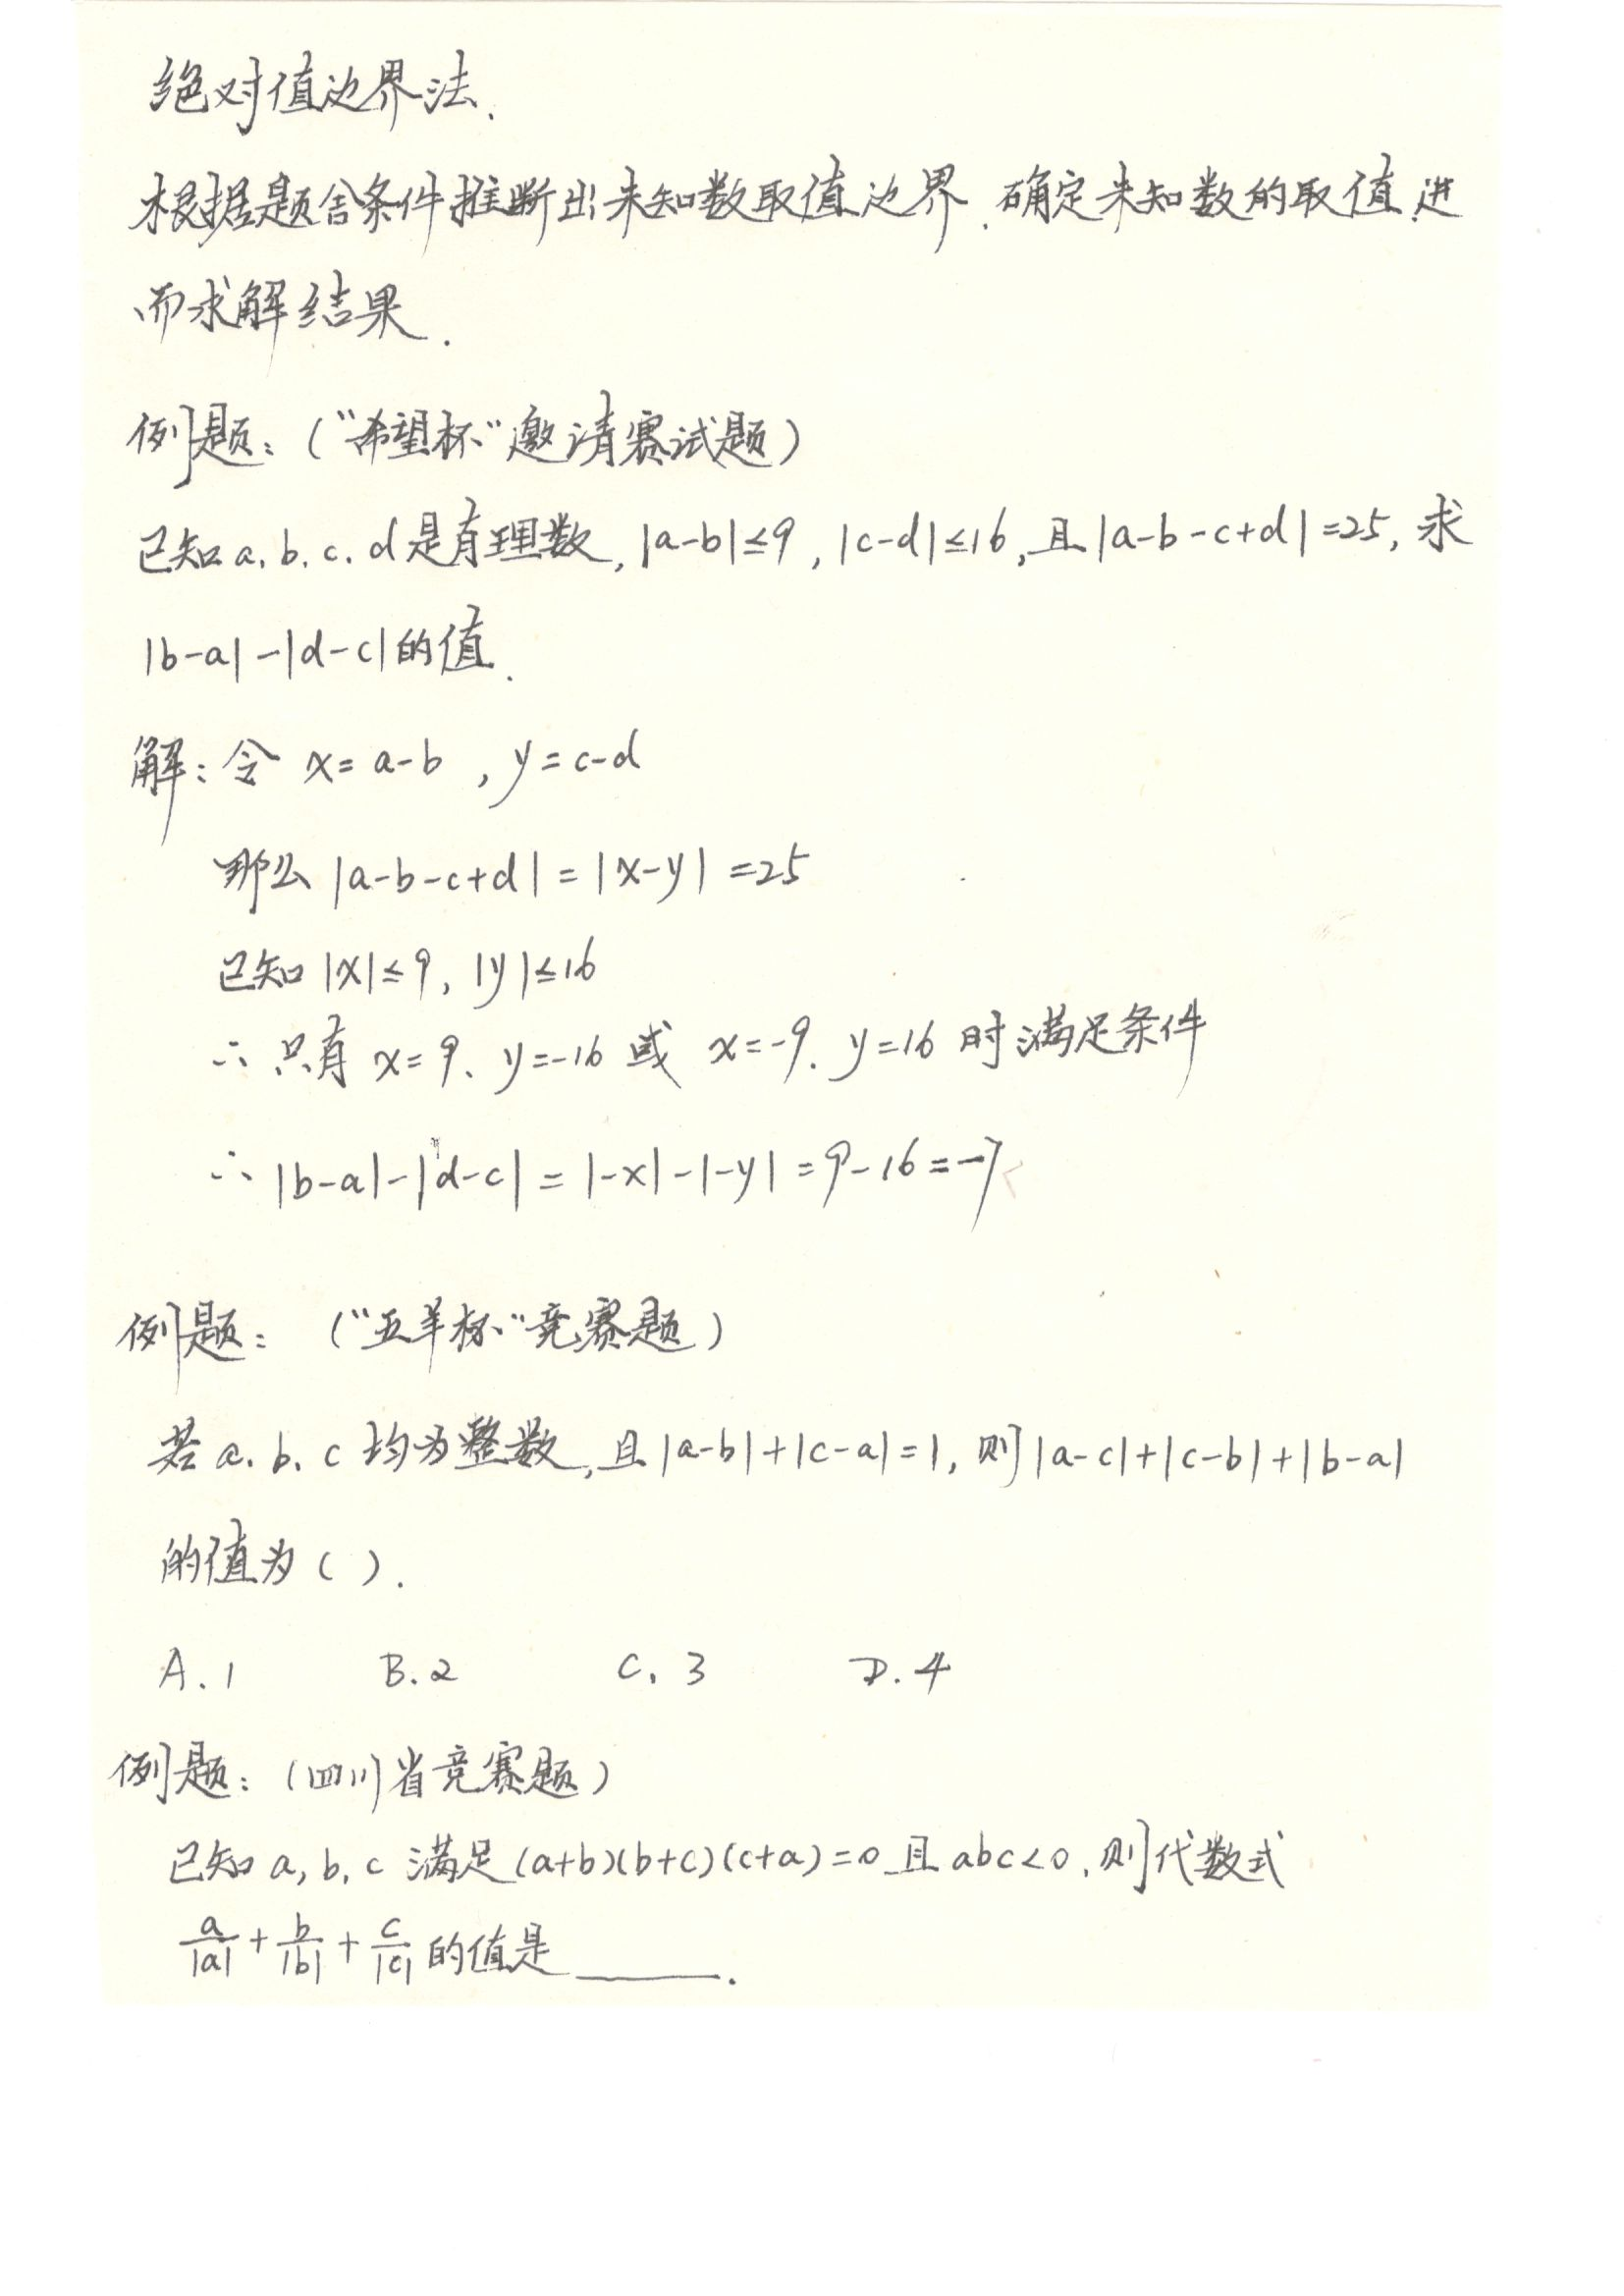 绝对值边界法.
根据题含条件推断出未知数取值边界.确定未知数的取值.进
而求解结果.
例题:("希望杯"邀请赛试题)
已知a.b.c.d是有理数,|a-b|≤9,|c-d|≤16,且|a-b-c+d|=25,求
|b-a|-|d-c|的值.
解:令 x=a-b ,y=c-d
那么|a-b-c+d|=|x-y|=25
已知|x|≤9,|y|≤16
∴只有 x=9、y=-16 或 x=-9.y=16 时满足条件
∴|b-a|-|d-c|=|-x|-|-y|=9-16=-7
例题: ("五羊杯"竞赛题)
若a.b.c均为整数,且|a-b|+|c-a|=1,则|a-c|+|c-b|+|b-a|
的值为( ).
A.1 B.2 C.3 D.4
例题:(四川省竞赛题)
已知a,b,c满足(a+b)(b+c)(c+a)=0且abc<0.则代数式
a/|a|+b/|b|+c/|c|的值是____.